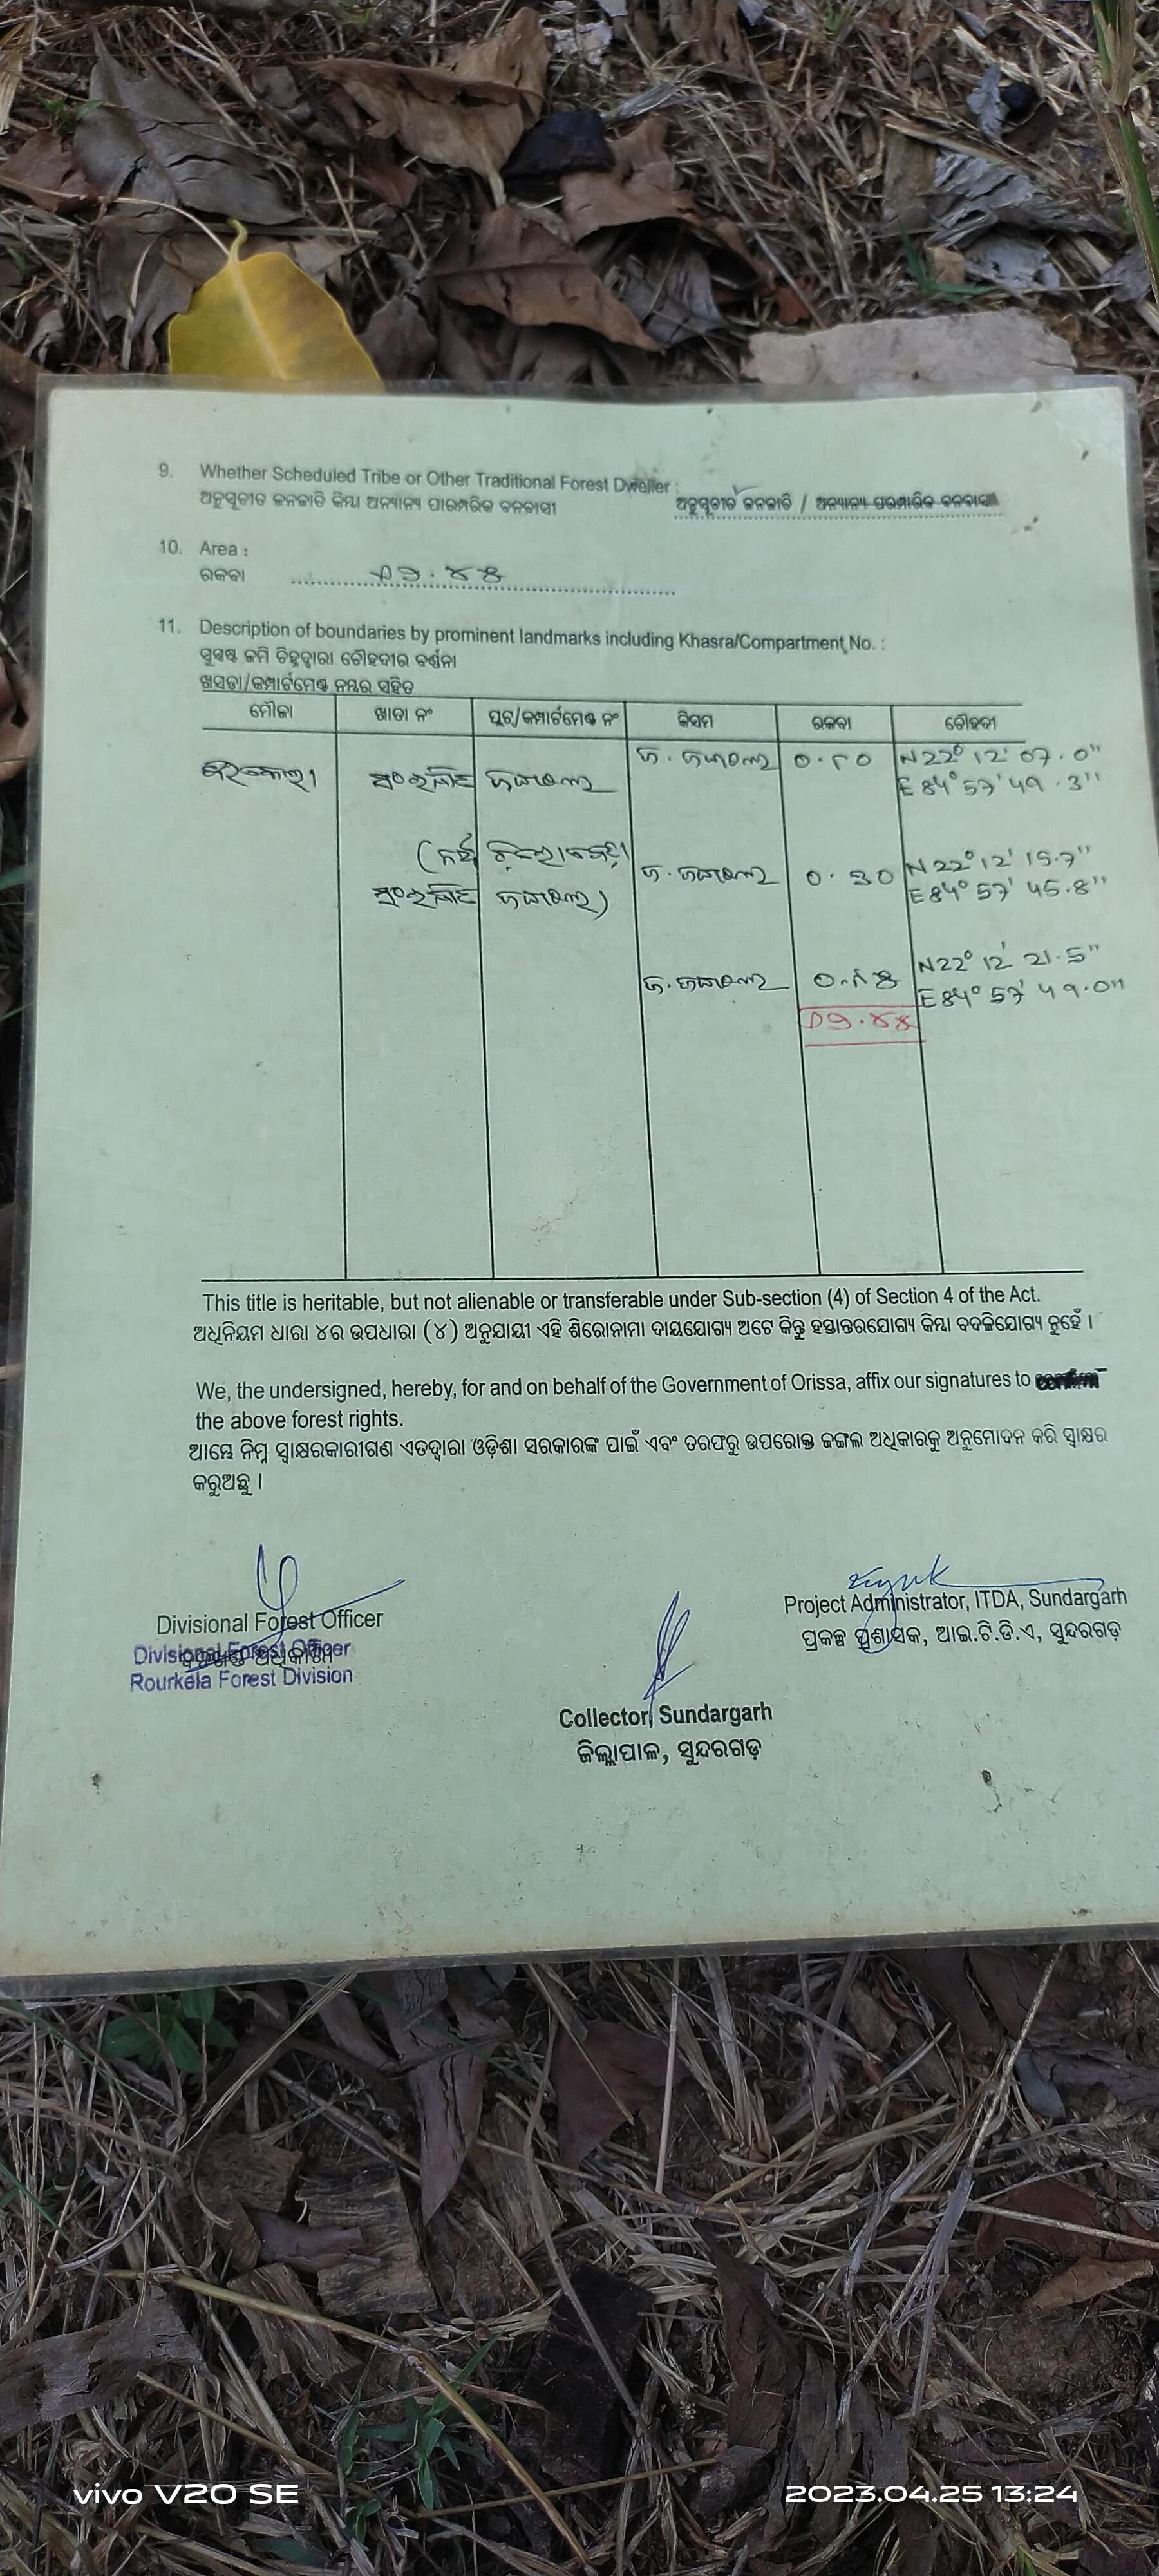 9. Whether Scheduled Tribe or Other Traditional Forest Dweller :
ଅନୁସୂଚୀତ ଜନଜାତି କିମ୍ବା ଅନ୍ୟାନ୍ୟ ପାରମ୍ପରିକ ବନବାସୀ ଅନୁସୂଚୀତ ଜନଜାତି / ଅନ୍ୟାନ୍ୟ ପରମ୍ପାରିକ ବନବାସୀ
10. Area :
ରକବା
11. Description of boundaries by prominent landmarks including Khasra/Compartment No. :
ସୁସ୍ପଷ୍ଟ ଜମି ଚିହ୍ନଦ୍ୱାରା ଚୌହଦୀର ବର୍ଣ୍ଣନା
ଖସଡା/କମ୍ପାର୍ଟମେଣ୍ଟ ନମ୍ବର ସହିତ
ମୌଜା ଖାତା ନଂ ପ୍ଲଟ୍/କମ୍ପାର୍ଟମେଣ୍ଟ ନଂ କିସମ ରକବା ଚୌହଦୀ
N22° 12' 07.0"
E 84° 57' 49.3"
N22° 12' 15.7"
E84° 57' 45.8"
N22° 12' 21.5"
E84° 57' 49.0"
This title is heritable, but not alienable or transferable under Sub-section (4) of Section 4 of the Act.
ଅଧିନିୟମ ଧାରା ୪ର ଉପଧାରା (୪) ଅନୁଯାୟୀ ଏହି ଶିରୋନାମା ଦାୟଯୋଗ୍ୟ ଅଟେ କିନ୍ତୁ ହସ୍ତାନ୍ତରଯୋଗ୍ୟ କିମ୍ବା ବଦଳିଯୋଗ୍ୟ ନୁହେଁ ।
We, the undersigned, hereby, for and on behalf of the Government of Orissa, affix our signatures to confirm
the above forest rights.
ଆମ୍ଭେ ନିମ୍ନ ସ୍ୱାକ୍ଷରକାରୀଗଣ ଏତଦ୍ୱାରା ଓଡ଼ିଶା ସରକାରଙ୍କ ପାଇଁ ଏବଂ ତରଫରୁ ଉପରୋକ୍ତ ଜଙ୍ଗଲ ଅଧିକାରକୁ ଅନୁମୋଦନ କରି ସ୍ୱାକ୍ଷର
କରୁଅଛୁ ।
Divisional Forest Officer
Divisional Forest Officer
Rourkela Forest Division
Project Administrator, ITDA, Sundargarh
ପ୍ରକଳ୍ପ ପ୍ରଶାସକ, ଆଇ.ଟି.ଡି.ଏ, ସୁନ୍ଦରଗଡ଼
Collector, Sundargarh
ଜିଲ୍ଲାପାଳ, ସୁନ୍ଦରଗଡ଼
vivo V20 SE
2023.04.25 13:24